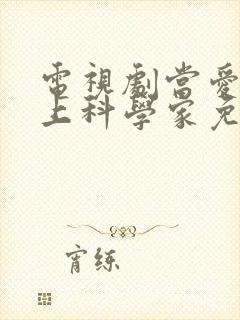 電視劇當愛
上科學家免
宵练